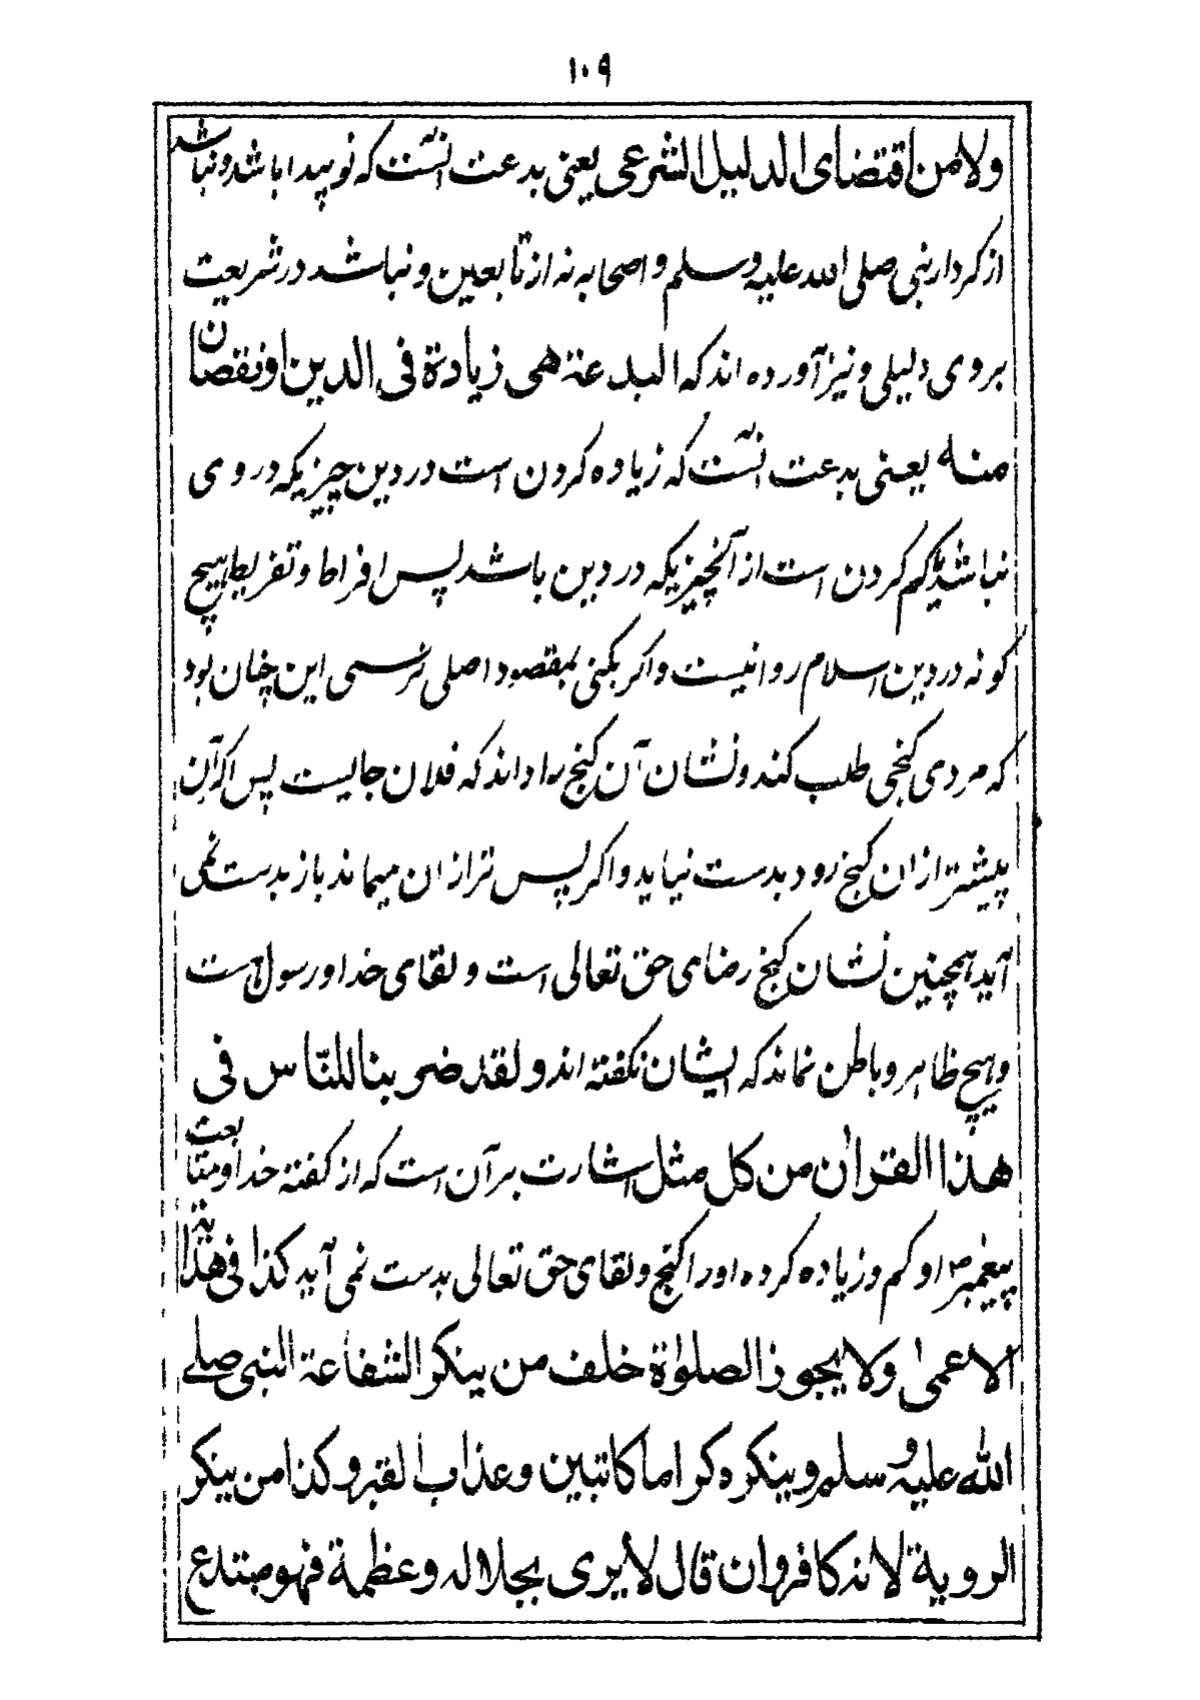 ۱۰۹
ولا من اقتضای الدلیل الشرعی یعنی بدعت آنست که نو پیدا باشد و نباشد
از کردار نبی صلی الله علیه وسلم و اصحابه نه از تابعین و نباشد در شریعت
بروی دلیلی و نیز آورده اند که البدعة هی زیادة فی الدین او نقصان
منه یعنی بدعت آنست که زیاده کردن است در دین چیزیکه در وی
نباشد یا کم کردن است از آنچیزیکه در دین باشد پس افراط و تفریط هیچ
کونه در دین اسلام روا نیست و اکر بکنی بمقصود اصلی نرسی این چنان بود
که مردی کنجی طلب کند و نشان آن کنج را داند که فلان جایست پس اکر آن
پیشتر ازان کنج رود بدست نیاید و اکر پس تر ازان میماند باز بدست نمی
آید همچنین نشان کنج رضای حق تعالی است و لقای خدا و رسول است
و هیچ ظاهر و باطن نماند که ایشان نکفته اند و لقد ضربنا للنّاس فی
هذا القرآن من کل مثل اشارت برآن است که از کفته خدا و متابعت
پیغمبر او کم و زیاده کرده اورا کنج و لقای حق تعالی بدست نمی آید کذا فی هدایة
الاعمی ولا یجوز الصلوٰة خلف من ینکر الشفاعة النبی صلے
الله علیه وسلم و ینکره کراما کاتبین و عذاب القبر و کذا من ینکر
الرویة لانه کافر وان قال لا یری بجلاله و عظمة فهو مبتدع